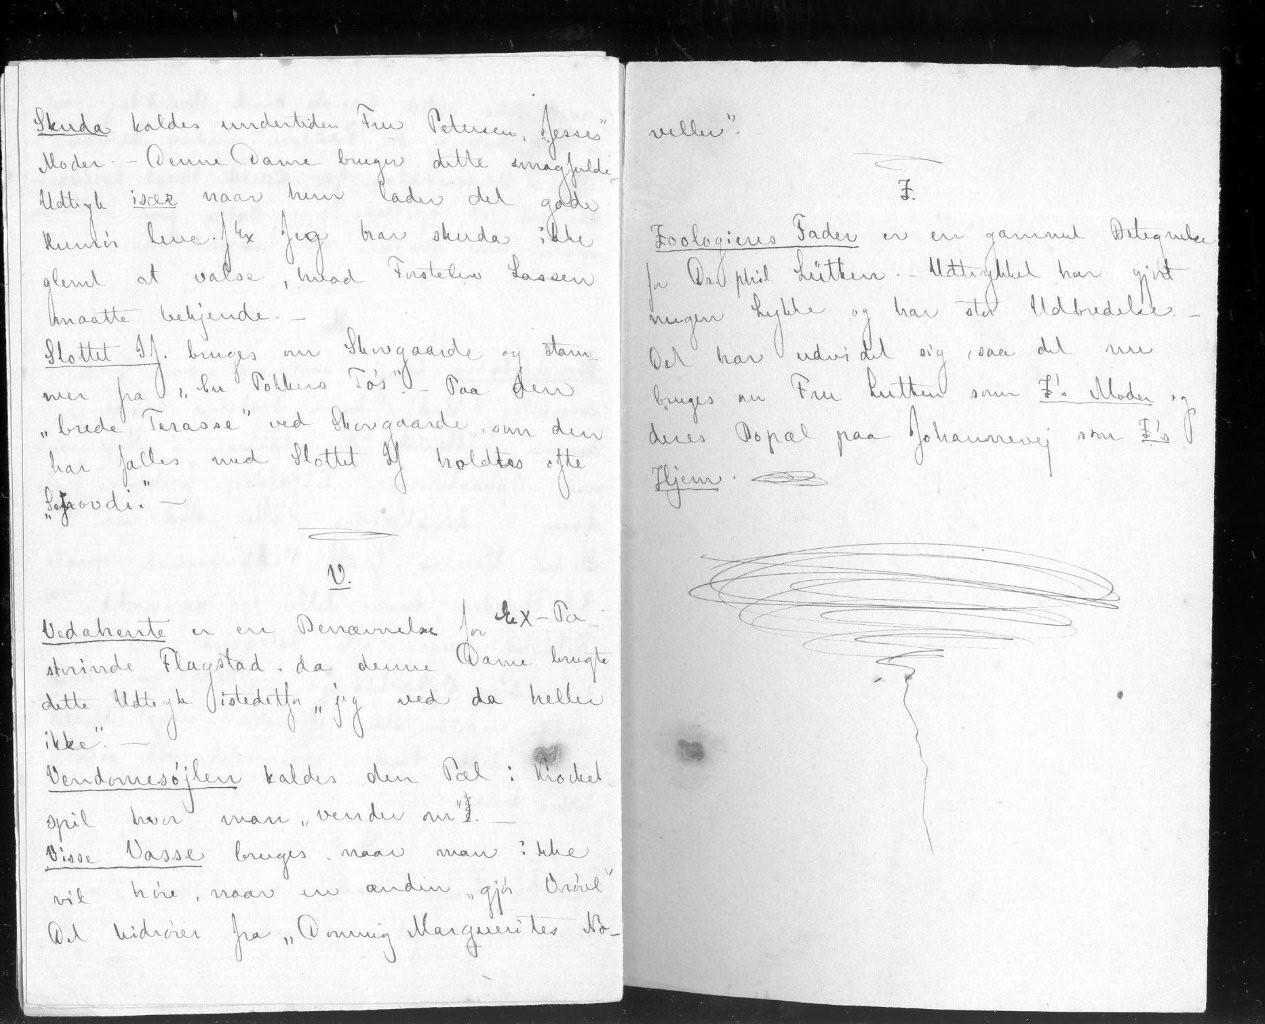 Skuda kaldes undertiden Fru Petersen, "Jesses"
Moder. - Denne Dame bruger dette smagfulde
Udtryk især naar hun lader det gode
Humör leve. f Ex Jeg har skuda ikke
glemt at valse, hvad Forstelev Lassen
maatte bekjende. -
Slottet If. bruges om Skovgaarde og stam-
mer fra "En Folkens Tös". - Paa den
"brede Terasse" ved Skovgaarde, som den
har fælles med Slottet If holdtes ofte
V.
Vedahente er en Benævnelse for Ex-Pa-
storinde Flagstad. da denne Dame brugte
dette Udtryk istedetfor "jeg ved da heller
ikke". -
Vendomesøjlen kaldes den Pæl i Krocket
spil hvor man "vender om". -
Visse Vasse bruges. naar man ikke
vil höre, naar en anden "gjör Vrövl"
Det hidrører fra "Dronning Marguerites No-
veller".
Z.
Zoologiens Fader er en gammel Betegnelse
for Dr phil Lütken. - Udtrykket har gjort
megen Lykke og har stor Udbredelse. -
Det har udvidet sig, saa det nu
bruges om Fru Lütken som Z's Moder og
deres Bopæl paa Johannevej som Z's
Hjem.